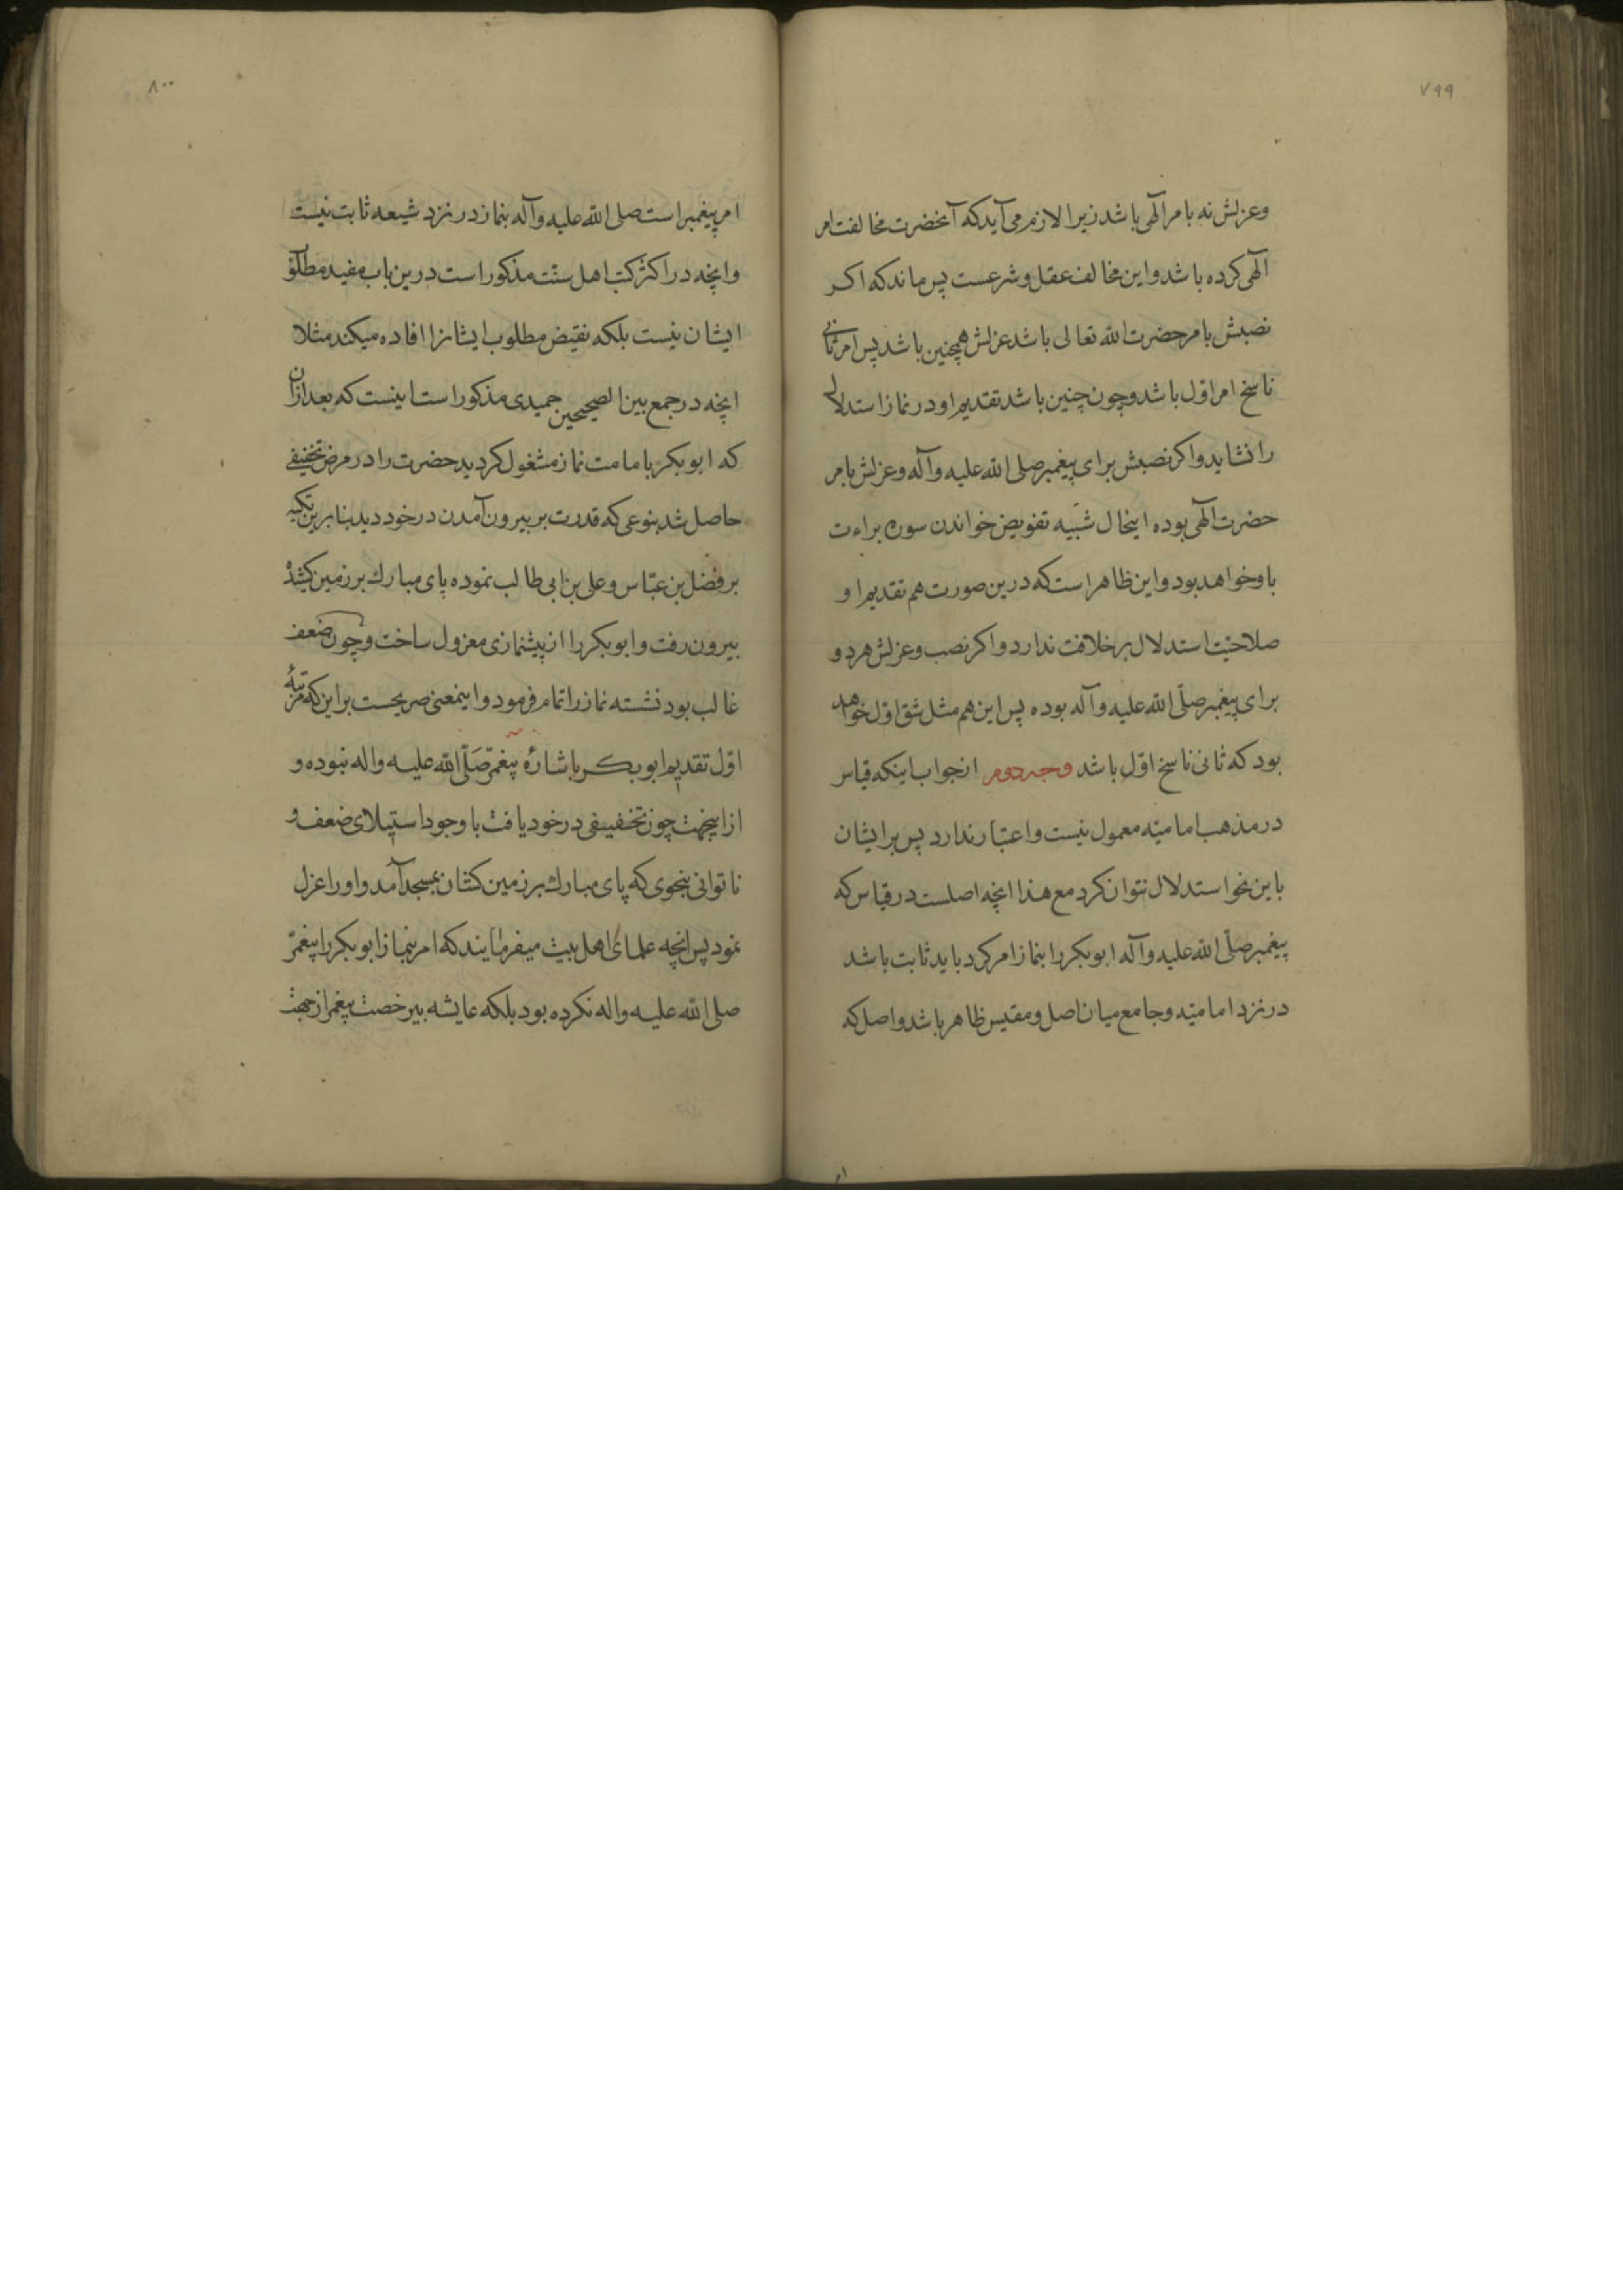 ۷۹۹
وعزلش نه بامر آلهی باشد زیرا لازم می آید که آنحضرت مخالفت امر
آلهی کرده باشد واین مخالف عقل و شرعست پس ماند که اکر
نصبش بامر حضرت الله تعالی باشد عزلش همچنین باشد پس امر ثانی
ناسخ امر اوّل باشد و چون چنین باشد تقدیم او در نماز استدلال
را نشاید واکر نصبش برای پیغمبر صلی الله علیه وآله وعزلش بامر
حضرت آلهی بوده اینحال شبیه تفویض خواندن سوره براءت
باو خواهد بود واین ظاهر است که درین صورت هم تقدیم او
صلاحیّت استدلال بر خلافت ندارد واکر نصب وعزلش هر دو
برای پیغمبر صلّی الله علیه وآله بوده پس این هم مثل شق اوّل خواهد
بود که ثانی ناسخ اوّل باشد وجه دوم از جواب اینکه قیاس
در مذهب امامیّه معمول نیست واعتبار ندارد پس بر ایشان
باین نحو استدلال نتوان کرد مع هذا انچه اصلست در قیاس که
پیغمبر صلّی الله علیه وآله ابوبکر را بنماز امر کرد باید ثابت باشد
در نزد امامیّه وجامع میان اصل ومقیس ظاهر باشد واصل که
۸۰۰
امر پیغمبر است صلی الله علیه وآله بنماز در نزد شیعه ثابت نیست
وانچه در اکثر کتب اهل سنّت مذکور است درین باب مفید مطلوب
ایشان نیست بلکه نقیض مطلوب ایشانرا افاده میکند مثلا
انچه در جمع بین الصحیحین حمیدی مذکور است اینست که بعد ازان
که ابوبکر بامامت نماز مشغول کردید حضرت را در مرض تخفیفی
حاصل شد بنوعی که قدرت بر بیرون آمدن در خود دید بنابرین تکیه
بر فضل بن عبّاس وعلی بن ابی طالب نموده پای مبارك بر زمین کشان
بیرون رفت وابوبکر را از پیشنمازی معزول ساخت وچون ضعف
غالب بود نشسته نماز را تمام فرمود واینمعنی صریحست براین که مرتبهٔ
اوّل تقدیم ابوبکر باشارهٔ پیغمبر صَلّی الله علیه واله نبوده و
ازاینجهت چون تخفیفی در خود یافت با وجود استیلای ضعف و
ناتوانی بنحوی که پای مبارك بر زمین کشان بمسجد آمد واورا عزل
نمود پس انچه علمای اهل بیت میفرمایند که امر بنماز ابوبکر را پیغمبر
صلی الله علیه واله نکرده بود بلکه عایشه بیرخصت پیغمبر از جهت